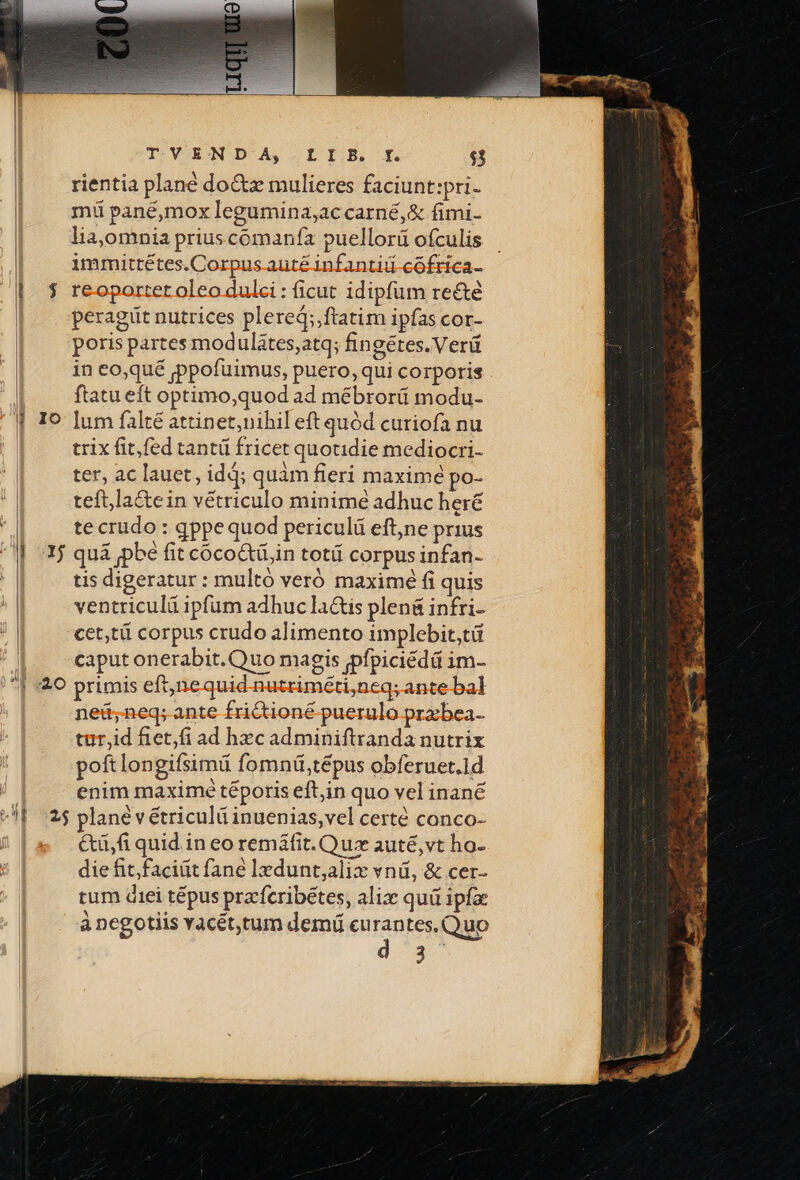 002
em libri
TVENDA, LIB. I. 53
rientia planè doctæ mulieres faciunt:pri-
mũ panẽ,mox legumina,ac carnẽ,& ſimi-
lia,omnia prius cõmanſa puellorũ oſculis
immittẽtes.Corpus autẽ infantiũ cõfrica-
5 re oportet oleo dulci : ſicut idipſum rectè
peragũt nutrices plereq;,ſtatim ipſas cor-
poris partes modulãtes,atq; fingẽtes.Verũ
in eo,quẽ ꝓpoſuimus, puero, qui corporis
ſtatu eſt optimo,quod ad mẽbrorũ modu-
10 lum ſaltẽ attinet,nihil eſt quòd curioſa nu
trix ſit,ſed tantũ fricet quotidie mediocri-
ter, ac lauet, idq́; quàm fieri maximè po-
teſt,lacte in vẽtriculo minimè adhuc herẽ
te crudo : qppe quod periculũ eſt,ne prius
15 quã ꝓbè ſit cõcoctũ,in totũ corpus infan-
tis digeratur : multò verò maximè ſi quis
ventriculũ ipſum adhuc lactis plenũ infri-
cet,tũ corpus crudo alimento implebit,tũ
caput onerabit.Quo magis ꝓſpiciẽdũ im-
20 primis eſt,ne quid nutrimẽti,neq; ante bal
neũ,neq; ante frictionẽ puerulo præbea-
tur,id fiet,ſi ad hæc adminiſtranda nutrix
poſt longiſsimũ ſomnũ,tẽpus obſeruet.Id
enim maximè tẽporis eſt,in quo vel inanẽ
25 planè vẽtriculũ inuenias,vel certè conco-
ctũ,ſi quid in eo remãſit.Quæ autẽ,vt ho-
die fit,faciũt ſanè lædunt,aliæ vnũ, & cer-
tum diei tẽpus præſcribẽtes, aliæ quũ ipſæ
à negotiis vacẽt,tum demũ curantes.Quo
d 3